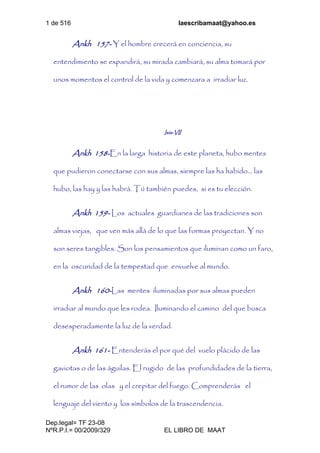 1 de 516 laescribamaat@yahoo.es
Ankh 157- Y el hombre crecerá en conciencia, su
entendimiento se expandirá, su mirada cambiará, su alma tomará por
unos momentos el control de la vida y comenzara a irradiar luz.
Inin VII
Ankh 158-En la larga historia de este planeta, hubo mentes
que pudieron conectarse con sus almas, siempre las ha habido... las
hubo, las hay y las habrá. Tú también puedes, si es tu elección.
Ankh 159- Los actuales guardianes de las tradiciones son
almas viejas, que ven más allá de lo que las formas proyectan. Y no
son seres tangibles. Son los pensamientos que iluminan como un faro,
en la oscuridad de la tempestad que envuelve al mundo.
Ankh 160-Las mentes iluminadas por sus almas pueden
irradiar al mundo que les rodea. Iluminando el camino del que busca
desesperadamente la luz de la verdad.
Ankh 161- Entenderás el por qué del vuelo plácido de las
gaviotas o de las águilas. El rugido de las profundidades de la tierra,
el rumor de las olas y el crepitar del fuego. Comprenderás el
lenguaje del viento y los símbolos de la trascendencia.
Dep.legal= TF 23-08
NºR.P.I.= 00/2009/329 EL LIBRO DE MAAT